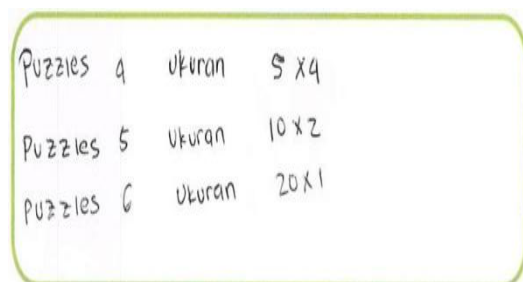 Puzzles 4 ukuran 5 x 4
Puzzles 5 ukuran 10 x 2
Puzzles 6 ukuran 20 x 1